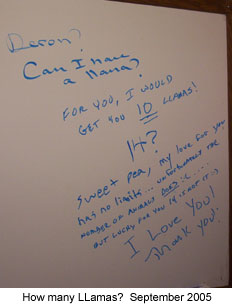 Deron?
Can I have
a llama?
FOR YOU, I WOULD
GET YOU 10 LLAMAS!
14?
Sweet pea, my love for you
has no limits... UNFORTUNATELY THE
NUMBER OF ANIMALS DOES
BUT LUCKY FOR YOU 14 IS NOT IT :)
I Love You!
Thank you!
How many LLamas? September 2005